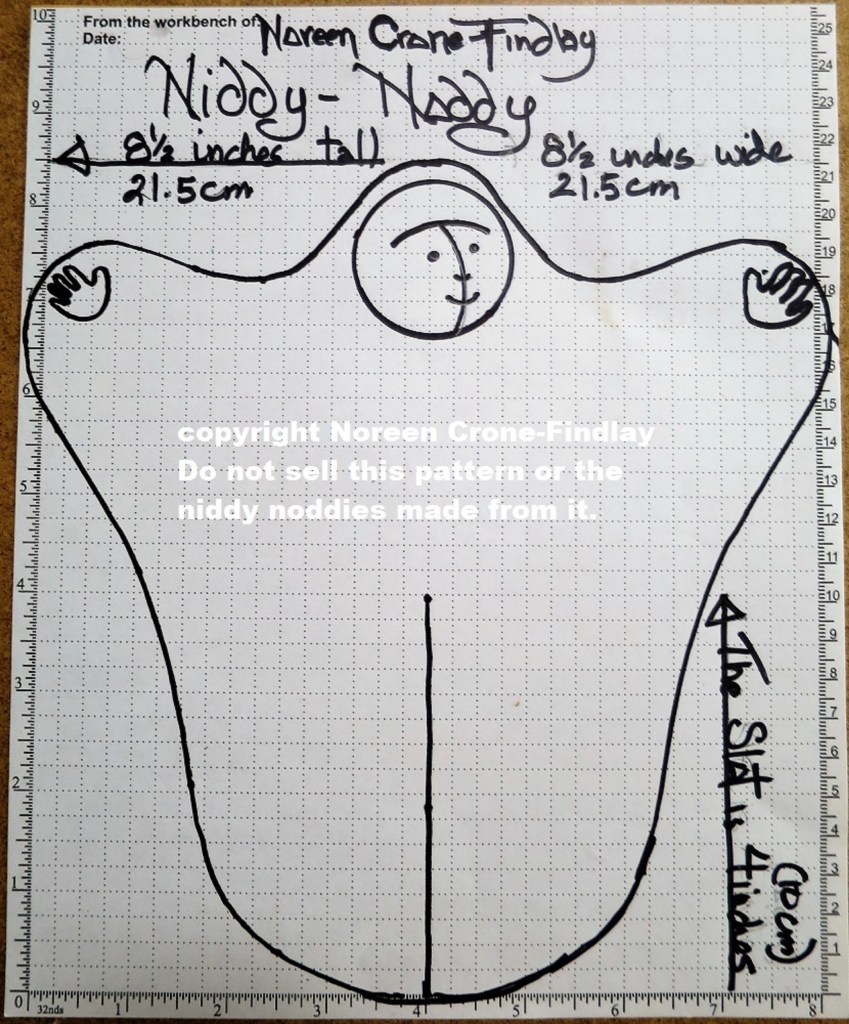 From the workbench of:
Noreen Crone-Findlay
Date:
Niddy-Noddy
8½ inches tall
21.5cm
8½ inches wide
21.5cm
copyright Noreen Crone-Findlay
Do not sell this pattern or the
niddy noddies made from it.
The Slot is 4 inches
(10 cm)
10
9
8
6
5
4
3
2
1
0
32nds
1
2
3
4
5
6
7
8
25
24
23
22
21
20
19
18
16
15
14
13
12
11
10
9
8
7
6
5
4
3
2
1